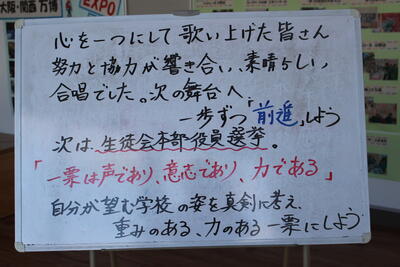 大阪・関西万博
EXPO
心を一つにして歌い上げた皆さん
努力と協力が響き合い、素晴らしい
合唱でした。次の舞台へ
一歩ずつ「前進」しよう
次は、生徒会本部役員選挙。
「一票は声であり、意志であり、力である」
自分が望む学校の姿を真剣に考え、
重みのある、力のある一票にしよう